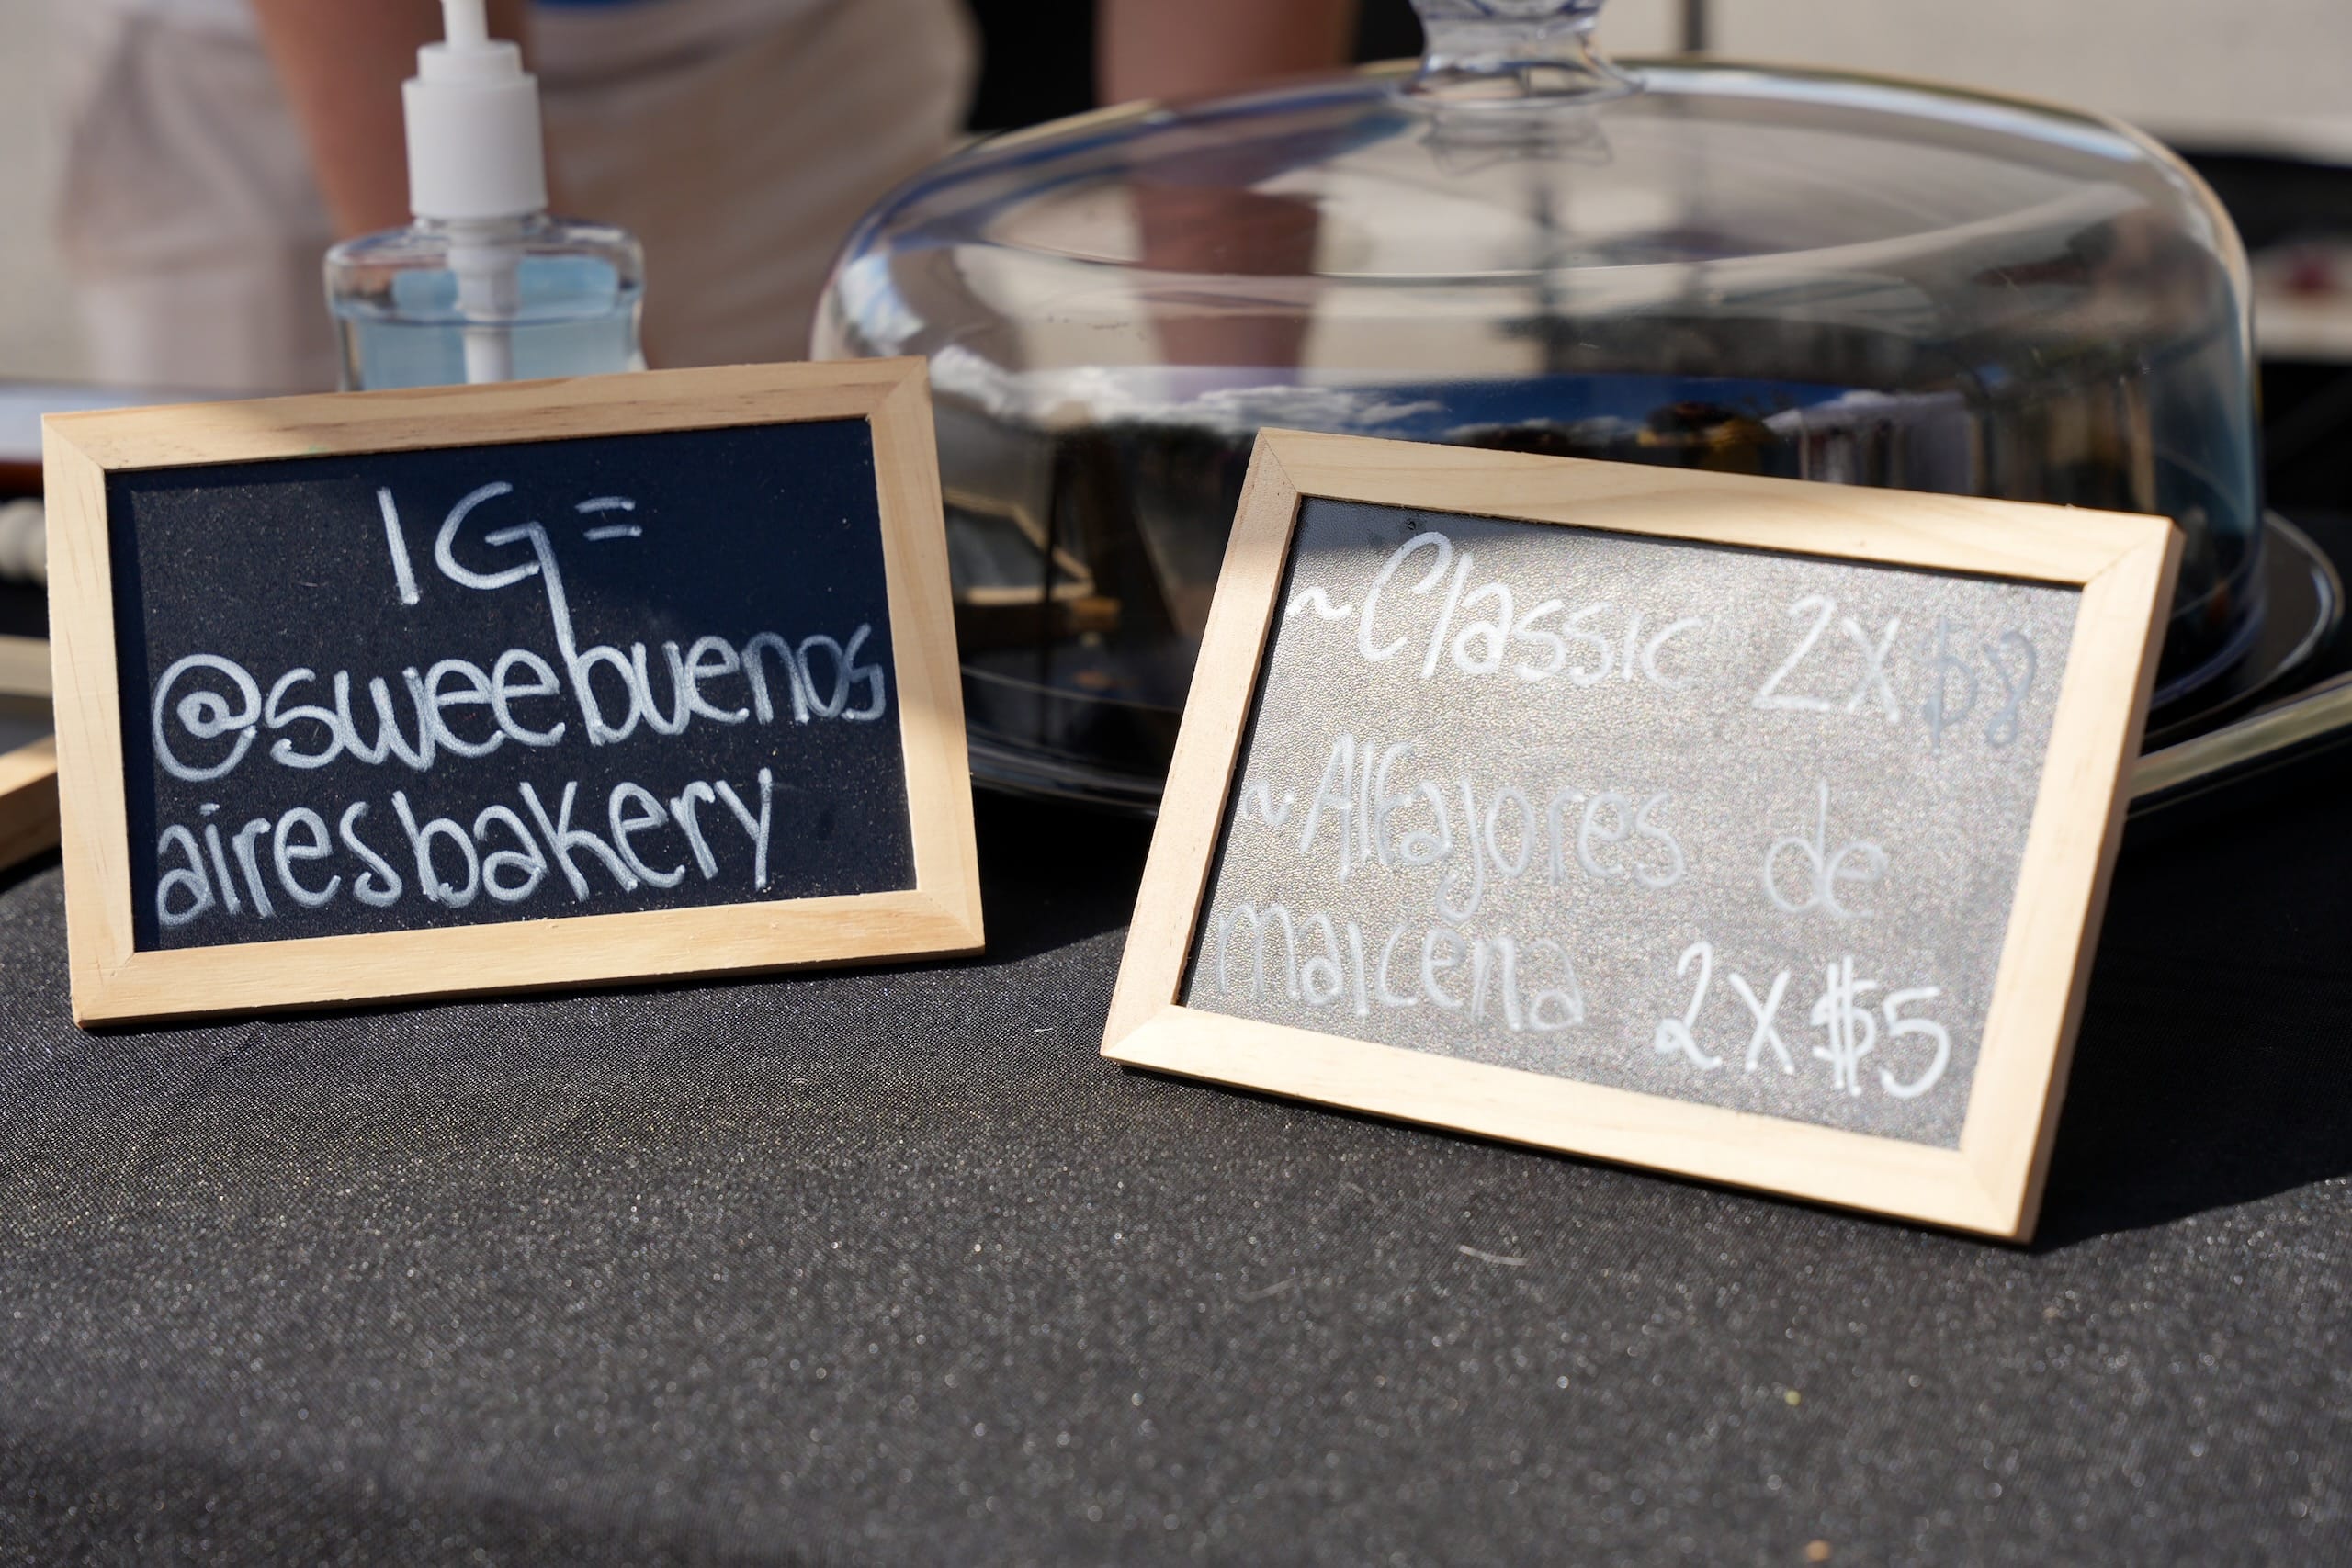 IG=
@sweebuenos
airesbakery
~Classic 2x $8
~Alfajores de
maicena 2x $5